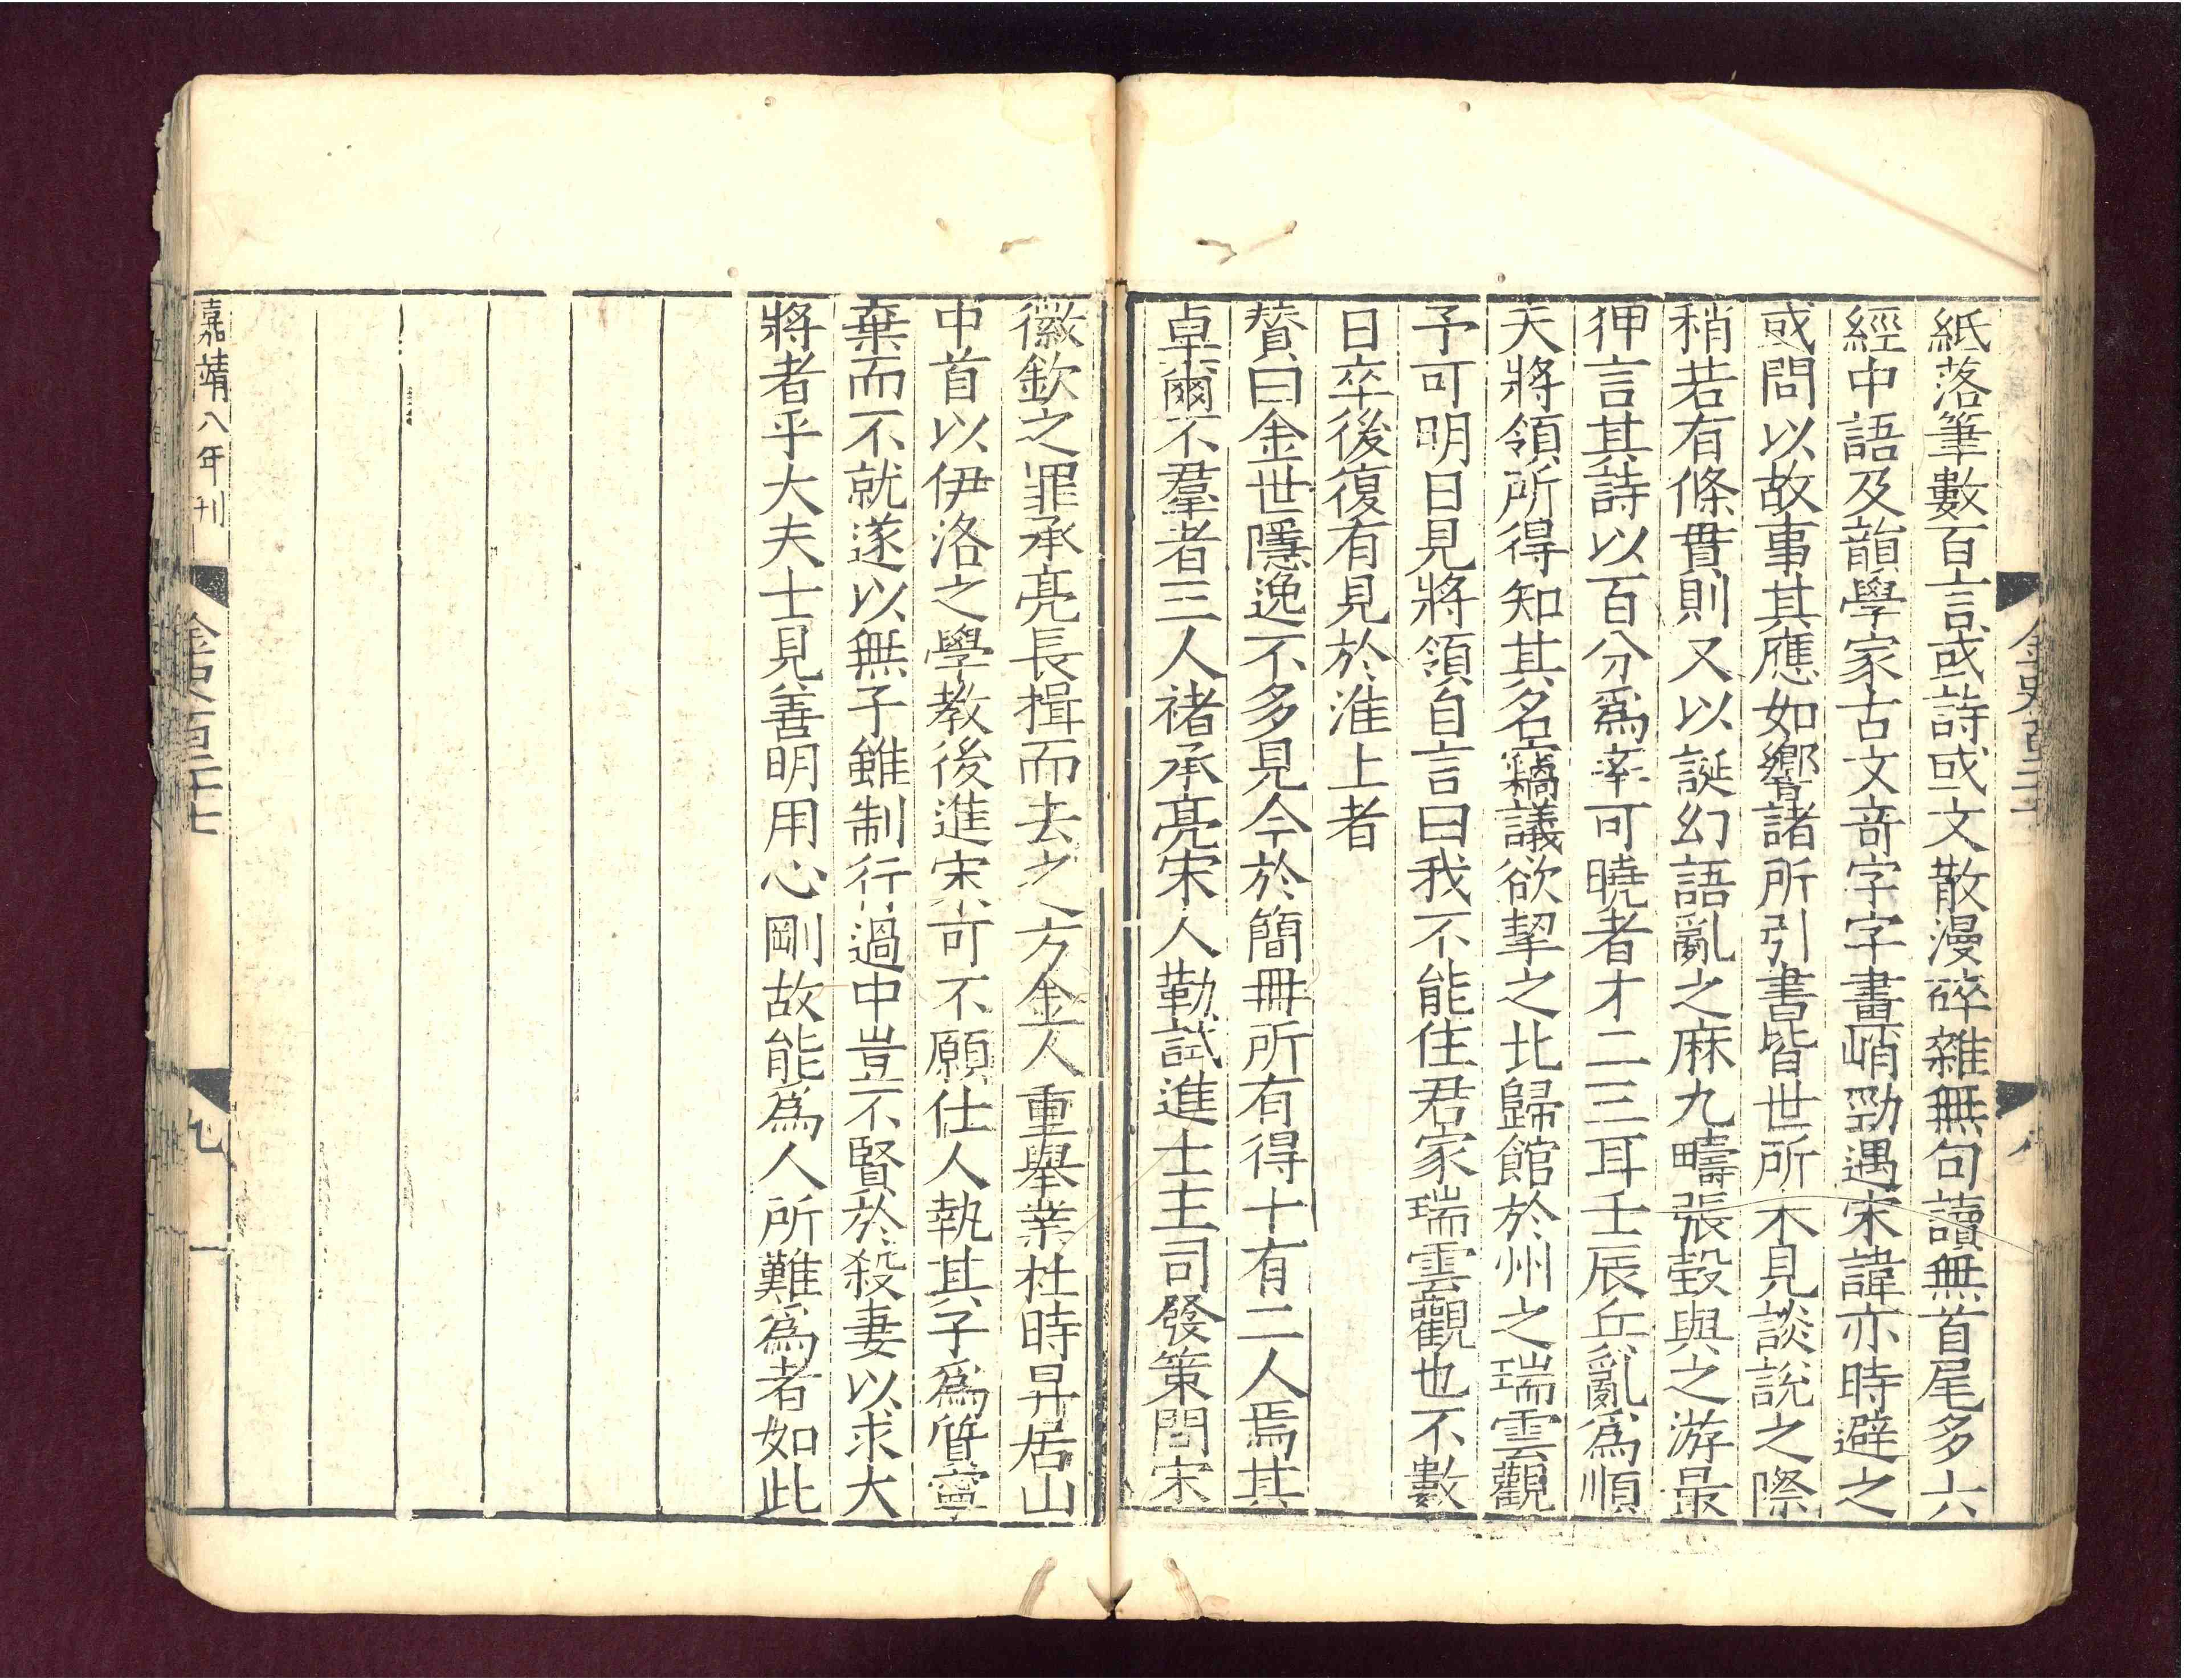 紙落筆數百言或詩或文散漫碎雜無句讀無首尾多六
經中語及韻學家古文奇字字畫峭勁遇宋諱亦時避之
或問以故事其應如響諸所引書皆世所不見談說之際
稍若有條貫則又以誕幻語亂之麻九疇張瑴與之游最
狎言其詩以百分爲率可曉者才二三耳壬辰兵亂爲順
天將領所得知其名竊議欲挈之北歸館於州之瑞雲觀
予可明日見將領自言曰我不能住君家瑞雲觀也不數
日卒後復有見於淮上者
贊曰金世隱逸不多見今於簡冊所有得十有二人焉其
卓爾不羣者三人褚承亮宋人勒試進士主司發策問宋
徽欽之罪承亮長揖而去之方金人重舉業杜時昇居山
中首以伊洛之學教後進宋可不願仕人執其子爲質寧
棄而不就遂以無子雖制行過中豈不賢於殺妻以求大
將者乎大夫士見善明用心剛故能爲人所難爲者如此
嘉靖八年刊
金史百二十七
九